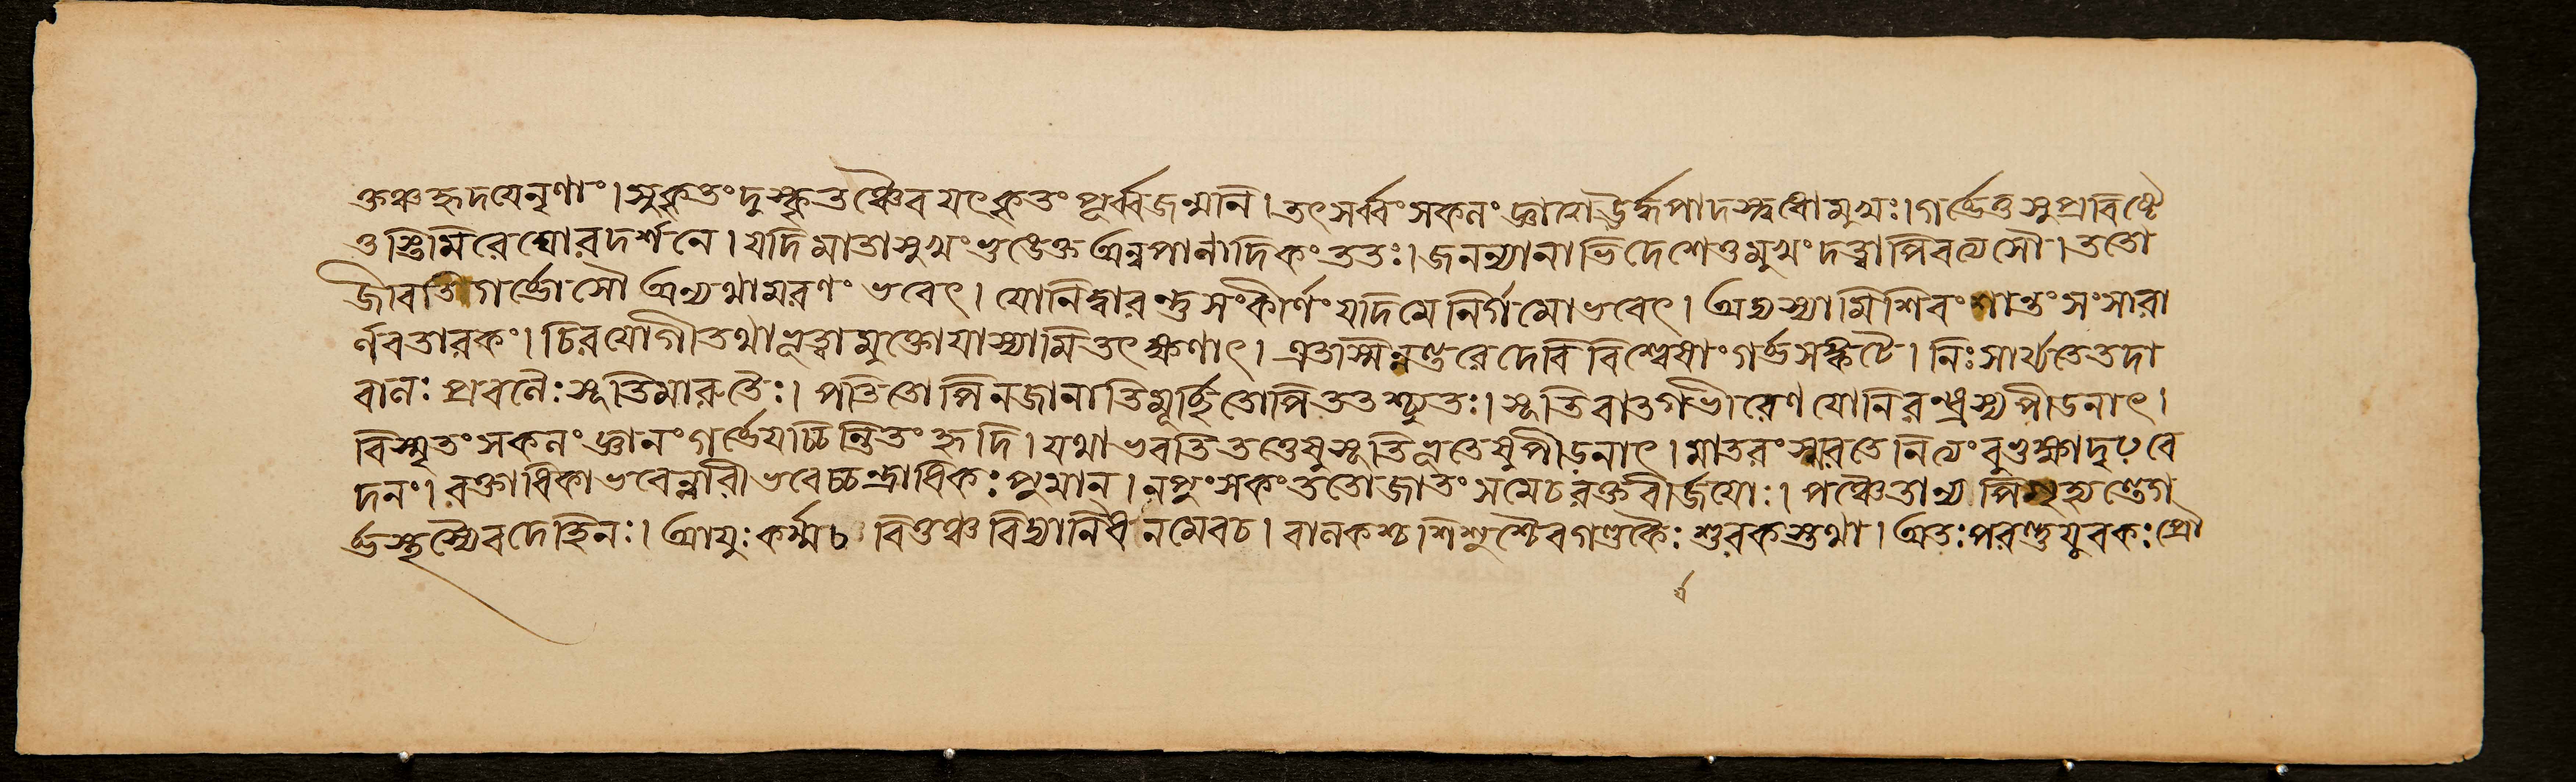 ক্তঞ্চহৃদয়েনৃণাং।সুকৃতংদুস্কৃতঞ্চৈবযৎকৃতংপূর্ব্বজন্মনি।তৎসর্ব্বংসকলংজ্ঞায়োর্দ্ধপাদস্ত্বধোমুখঃ।গর্ভেতুসুপ্রবিষ্টে
তুস্তিমিরেঘোরদর্শনে।যদিমাতাসুখংভুঙেক্তঅন্নপানাদিকংততঃ।জনন্যানাভিদেশেতুমুখংদত্ত্বাপিবত্যসৌ।ততো
জীবতিগর্ভোসৌঅন্যথামরণংভবেৎ।যোনিদ্বারন্তুসংকীর্ণংযদিমেনির্গমোভবেৎ।অদ্যস্যামিশিবংশান্তংসংসারা
র্ণবতারকং।চিরযোগীতথাভূত্বামুক্তোযাস্যামিতৎক্ষণাৎ।এতাস্মন্নন্তরেদেবিবিশ্বেষাংগর্ভসঙ্কটে।নিঃসার্য্যতেতদা
বালঃপ্রবলৈঃসূতিমারুতৈঃ।পতিতোপিনজানাতিমূর্চ্ছিতোপিততশ্চ্যুতঃ।সূতিবাতগভীরেণযোনিরন্ধ্রস্যপীডনাৎ।
বিস্মৃতংসকলংজ্ঞানংগর্ভেযচ্চিন্তিতংহৃদি।যথাভবতিতণ্ডেষুসূতিভূতেষুপীড়নাৎ।মাতরংস্মরতেনিত্যংবুভুক্ষাদৃঢ়বে
দনং।রক্তাধিকাভবেন্নারীভবেচ্চন্দ্রাধিকঃপুমান্।নপুংসকংততোজাতংসমেচরক্তবীর্জয়োঃ।পঞ্চৈতান্যপিসৃহ্যন্তেগ
র্ভস্থস্যৈবদেহিনঃ।আয়ুঃকর্ম্মচবিত্তঞ্চবিদ্যানিধনমেবচ।বালকশ্চশিশুশ্চৈবগণ্ডকৈঃশুবকস্তথা।অতঃপরন্তুযুবকঃপ্রৌ